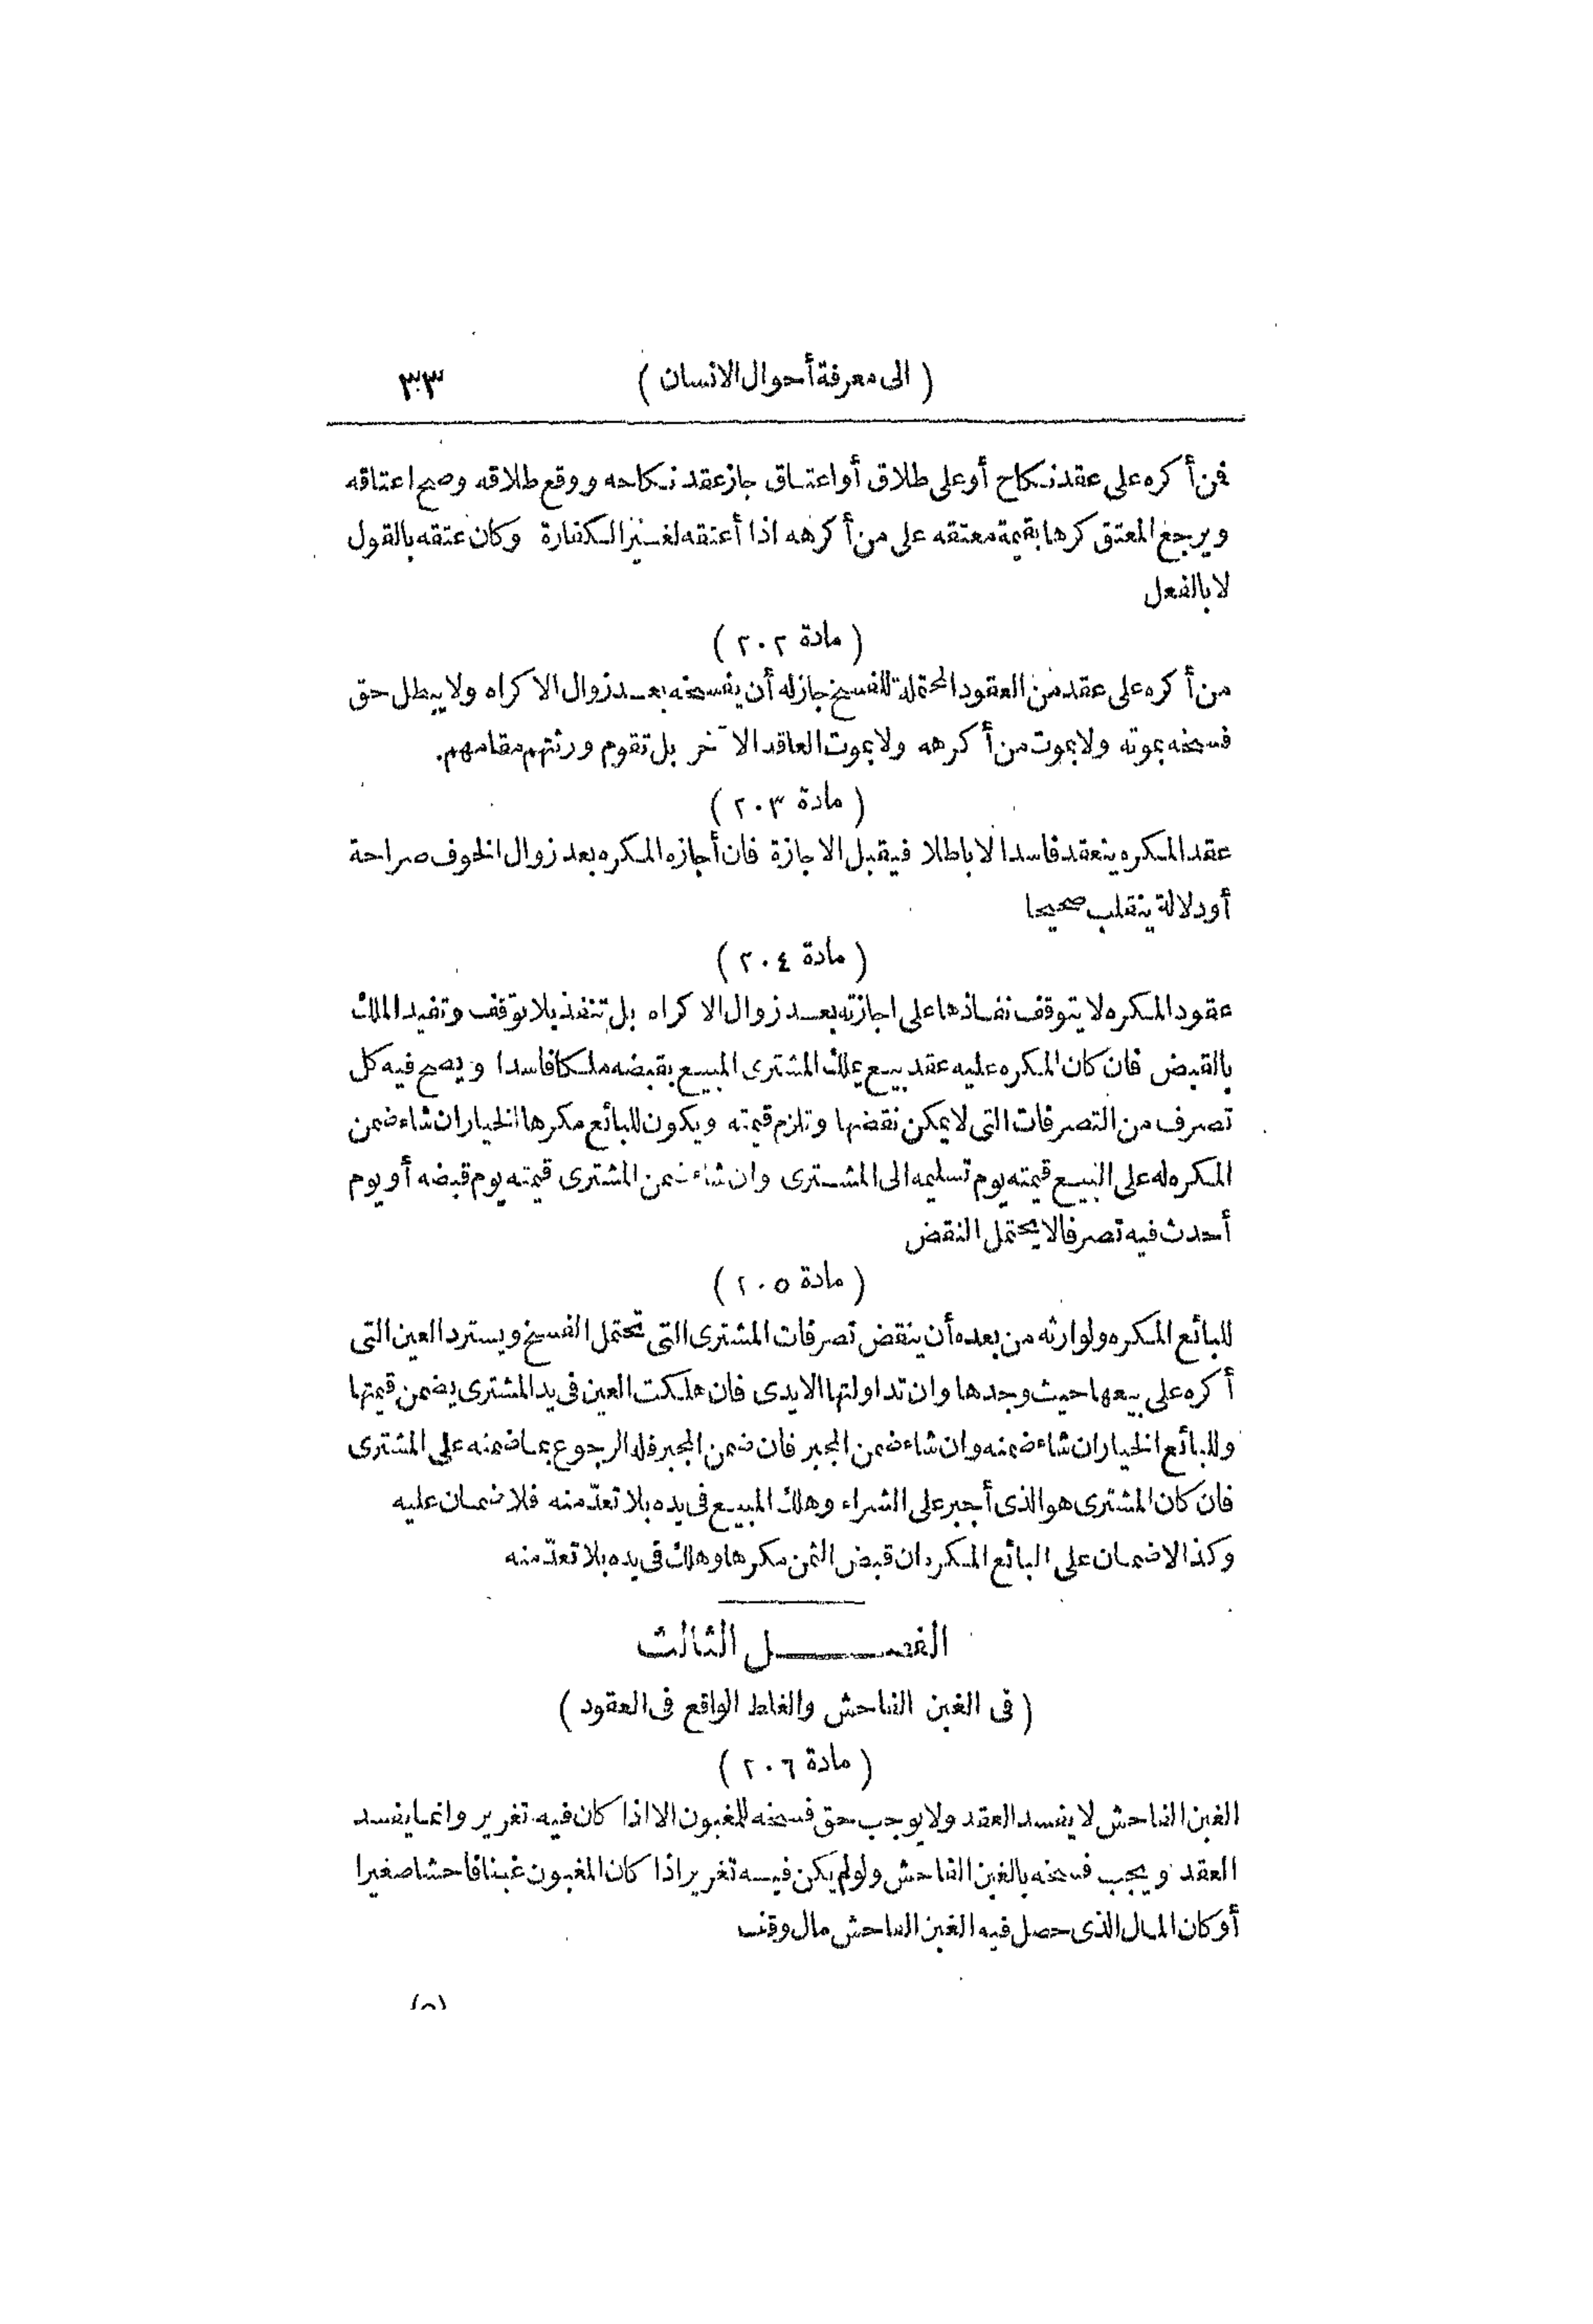 ( الى معرفة أحوال الانسان ) ٣٣
فمن أكره على عقد نكاح أو على طلاق أو اعتاق جاز عقد نكاحه ووقع طلاقه وصح اعتاقه
ويرجع المعتق كرها بقيمة معتقه على من أكرهه اذا أعتقه لغير الكفارة وكان عتقه بالقول
لا بالفعل
( مادة ٢٠٢ )
من أكره على عقد من العقود المحتملة للفسخ جاز له أن يفسخه بعد زوال الاكراه ولا يبطل حق
فسخه بموته ولا بموت من أكرهه ولا بموت العاقد الآخر بل تقوم ورثتهم مقامهم.
( مادة ٢٠٣ )
عقد المكره ينعقد فاسدا لا باطلا فيقبل الاجازة فان أجازه المكره بعد زوال الخوف صراحة
أو دلالة ينقلب صحيحا
( مادة ٢٠٤ )
عقود المكره لا يتوقف نفاذها على اجازته بعد زوال الاكراه بل تنفذ بلا توقف وتفيد الملك
بالقبض فان كان المكره عليه عقد بيع يملك المشترى المبيع بقبضه ملكا فاسدا ويصح فيه كل
تصرف من التصرفات التى لا يمكن نقضها وتلزم قيمته ويكون للبائع مكرها الخيار ان شاء ضمن
المكره له على البيع قيمته يوم تسليمه الى المشترى وان شاء ضمن المشترى قيمته يوم قبضه أو يوم
أحدث فيه تصرفا لا يحتمل النقض
( مادة ٢٠٥ )
للبائع المكره ولوارثه من بعده أن ينقض تصرفات المشترى التى تحتمل الفسخ ويسترد العين التى
أكره على بيعها حيث وجدها وان تداولتها الايدى فان هلكت العين فى يد المشترى يضمن قيمتها
وللبائع الخيار ان شاء ضمنه وان شاء ضمن المجبر فان ضمن المجبر فله الرجوع بما ضمنه على المشترى
فان كان المشترى هو الذى أجبر على الشراء وهلك المبيع فى يده بلا تعدّ منه فلا ضمان عليه
وكذا لا ضمان على البائع المكره ان قبض الثمن مكرها وهلك فى يده بلا تعدّ منه
الفصــــــل الثالث
( فى الغبن الفاحش والغلط الواقع فى العقود )
( مادة ٢٠٦ )
الغبن الفاحش لا يفسد العقد ولا يوجب حق فسخه للمغبون الا اذا كان فيه تغرير وانما يفسد
العقد ويجب فسخه بالغبن الفاحش ولو لم يكن فيه تغرير اذا كان المغبون غبنا فاحشا صغيرا
أو كان المال الذى حصل فيه الغبن الفاحش مال وقف
(٥)